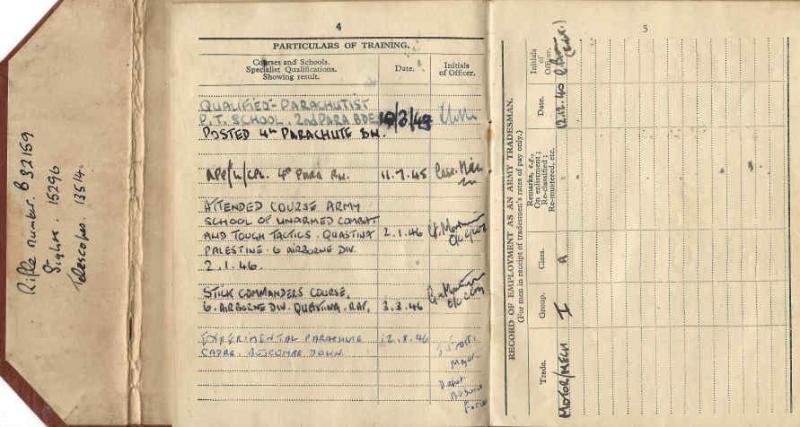 Rifle number. B 32159
Sights. 15296
Telescope. 13514.
4
PARTICULARS OF TRAINING.
Courses and Schools.
Specialist Qualifications.
Showing result.
Date.
Initials
of Officer.
QUALIFIED - PARACHUTIST
P.T. SCHOOL. 2nd PARA BDE
POSTED 4th PARACHUTE BN.
APP/L/CPL. 4th PARA BN. 11.7.45
ATTENDED COURSE ARMY
SCHOOL OF UNARMED COMBAT
AND TOUGH TACTICS. QUASTINA 2.1.46
PALESTINE. 6 AIRBORNE DIV.
2.1.46.
STICK COMMANDERS COURSE,
6. AIRBORNE DIV. QUASTINA. RAF, 3.3.46
EXPERIMENTAL PARACHUTE 12.8.46
CADRE. BOSCOMBE DOWN
Major
Depot
Airborne
Forces
5
RECORD OF EMPLOYMENT AS AN ARMY TRADESMAN.
(For men in receipt of tradesmen's rates of pay only.)
Trade.
Group.
Class.
Remarks, e.g.,
On enlistment;
Re-classified;
Re-mustered, etc.
Date.
Initials
of
Officer.
MOTOR/MECH I A 12.12.40